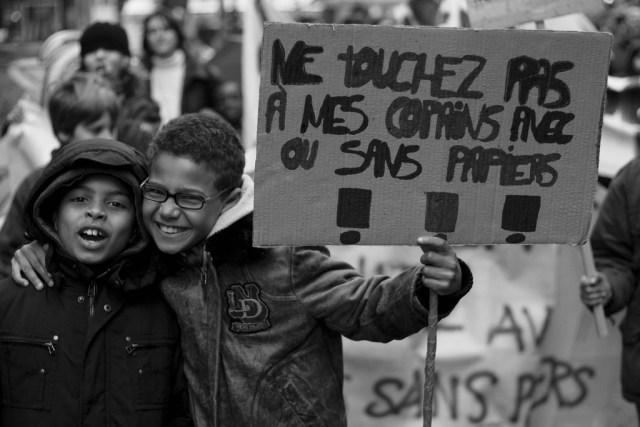 NE TOUCHEZ PAS
À MES COPAINS AVEC
OU SANS PAPIERS
!!!
AV
SANS